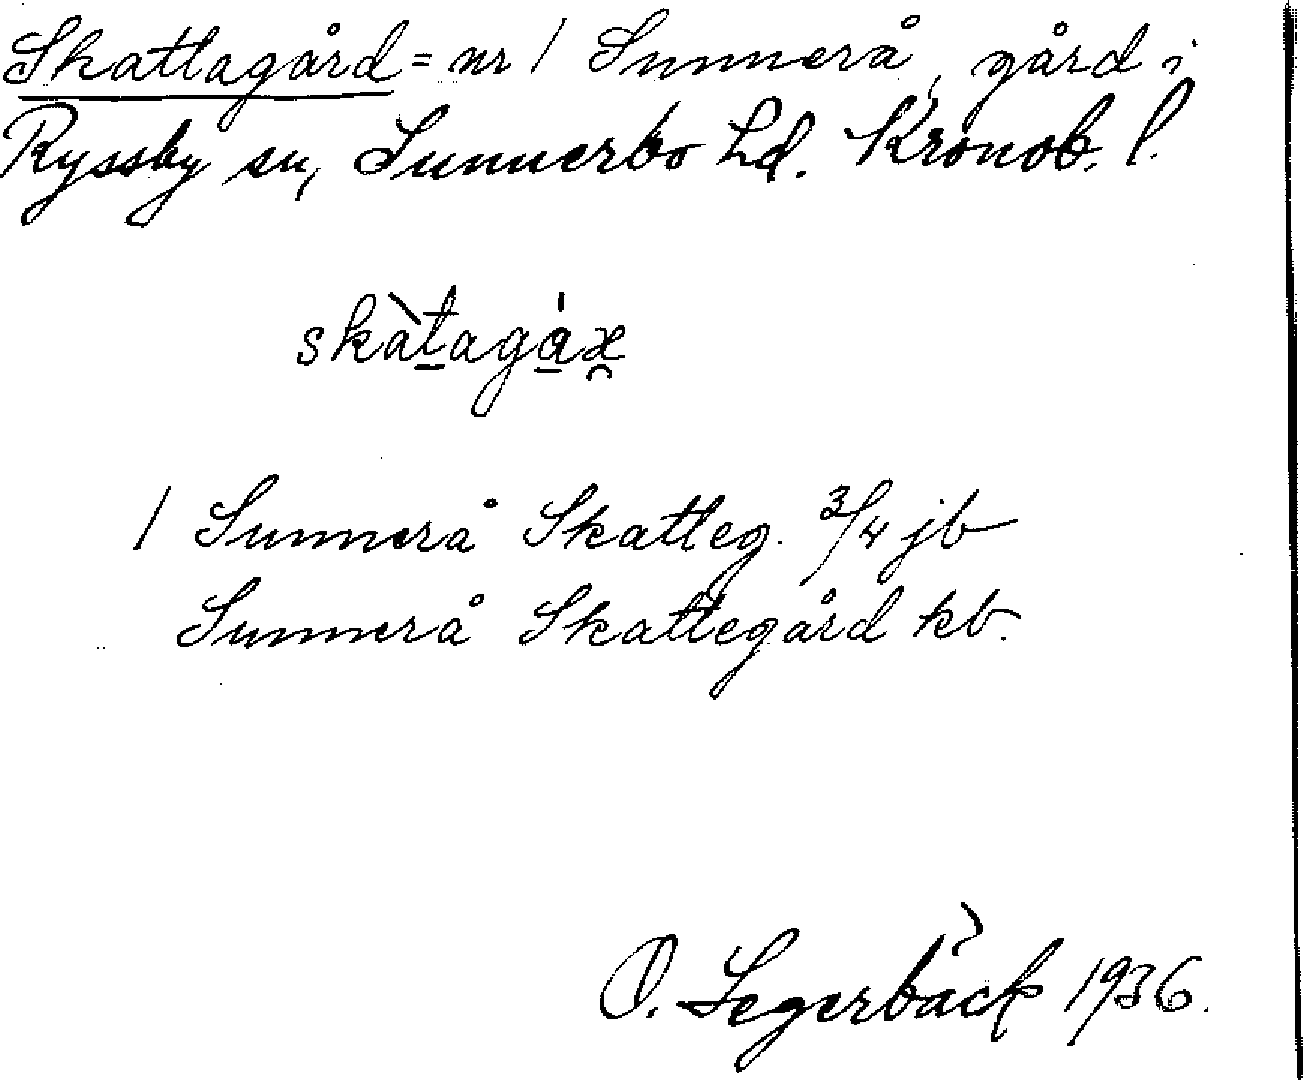 Skattagård = nr 1 Sunnerå, gård i
Ryssby sn, Sunnerbo hd. Kronob. l.
skàtagáꭗ
1 Sunnerå Skatteg. 3/4 jb
Sunnerå Skattegård kb.
O. Segerbäck 1936.